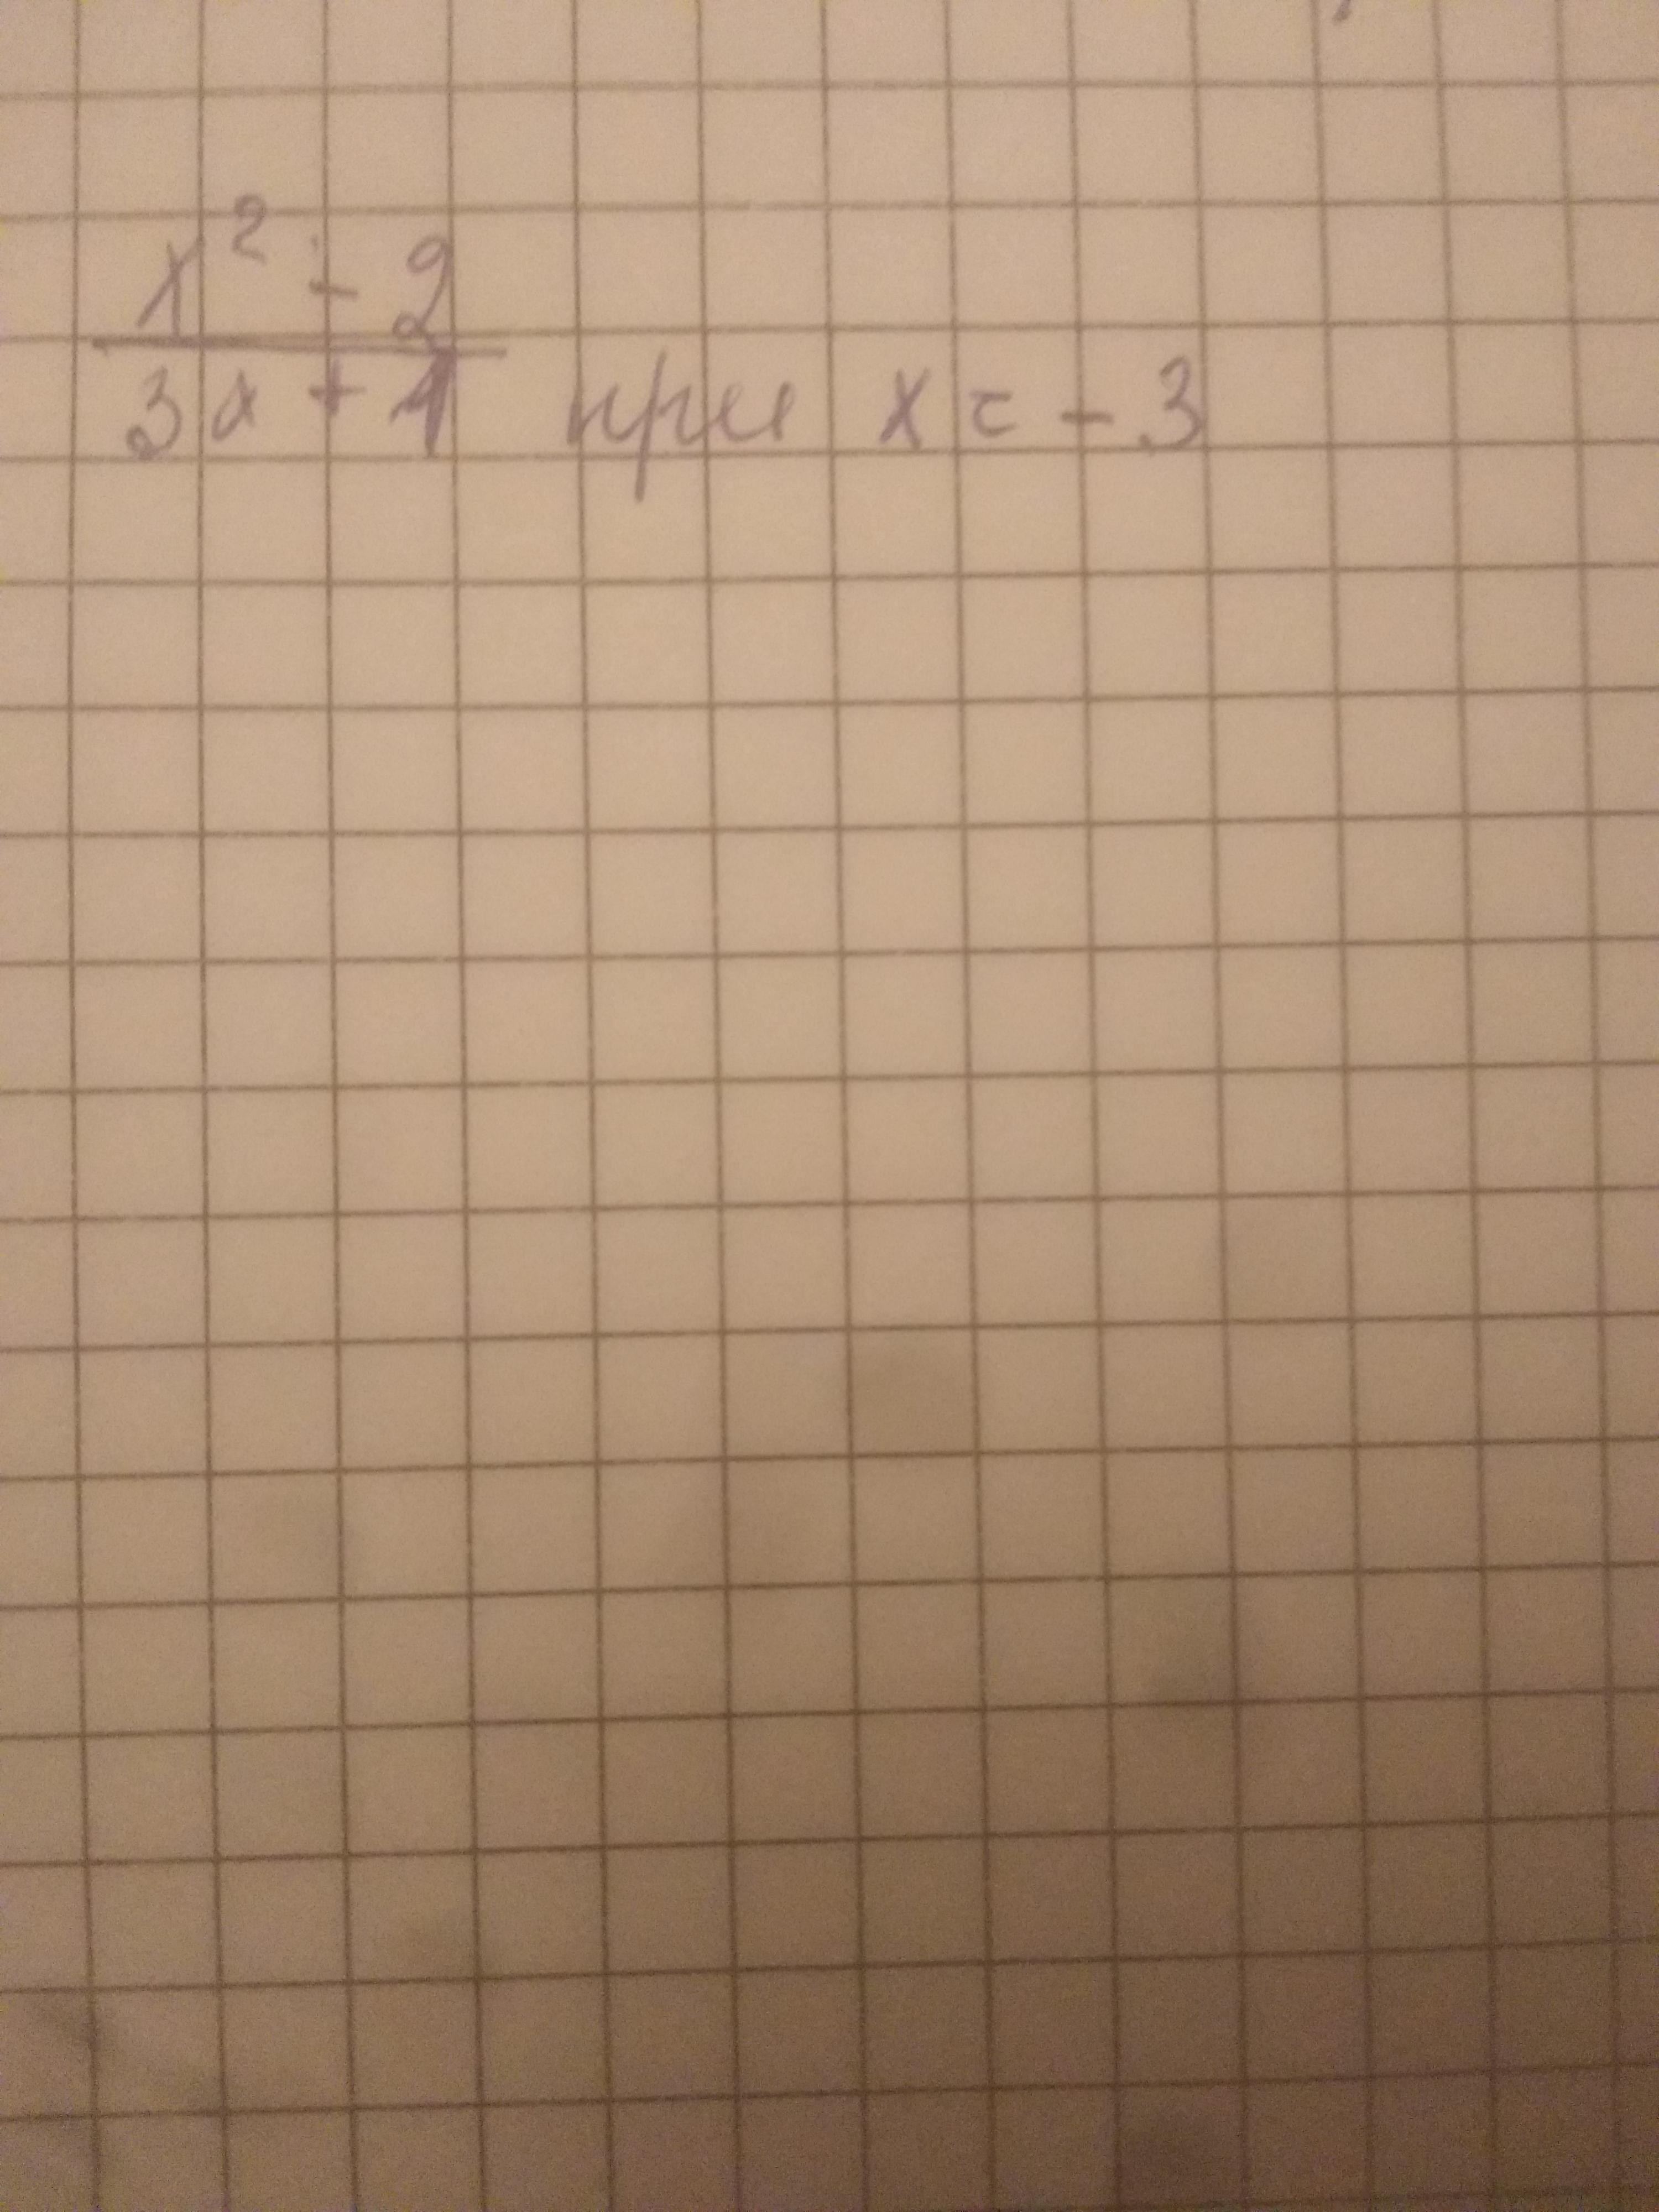 x² - 2
3x + 1 при x = - 3